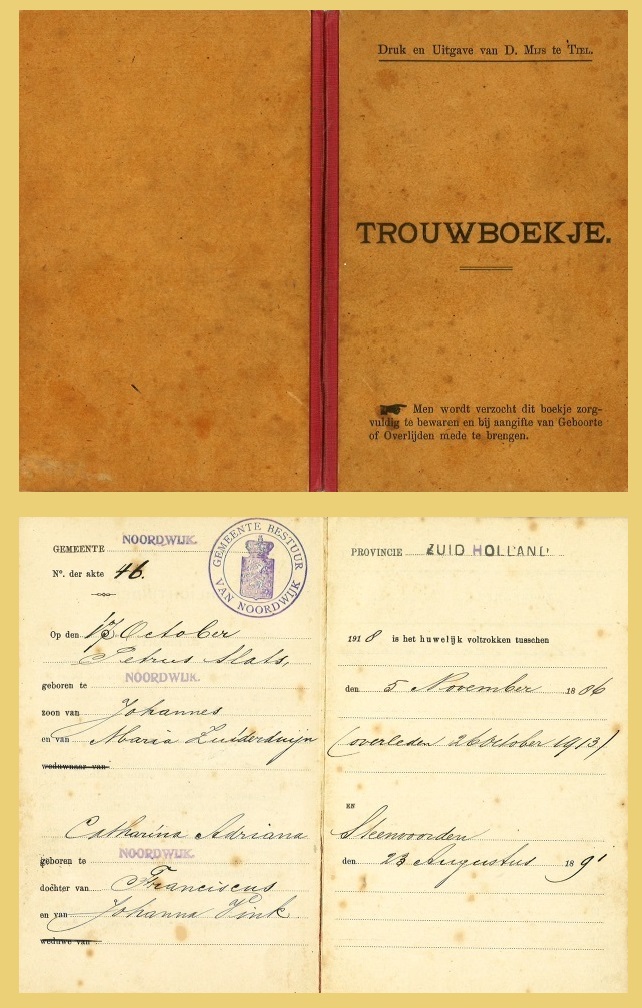 Druk en Uitgave van D. Mijs te Tiel.
TROUWBOEKJE.
Men wordt verzocht dit boekje zorg-
vuldig te bewaren en bij aangifte van Geboorte
of Overlijden mede te brengen.
GEMEENTE NOORDWIJK.
No. der akte 46.
GEMEENTE BESTUUR VAN NOORDWIJK
Op den 17 October
Petrus Slats,
geboren te NOORDWIJK.
zoon van Johannes
en van Maria Zuiderduijn
weduwnaar van
Catharina Adriana
geboren te NOORDWIJK.
dochter van Franciscus
en van Johanna Vink
weduwe van
PROVINCIE ZUID HOLLAND
1918 is het huwelijk voltrokken tusschen
den 5 November 1886
(overleden 26 October 1913)
EN
Steenvoorden
den 23 Augustus 1891